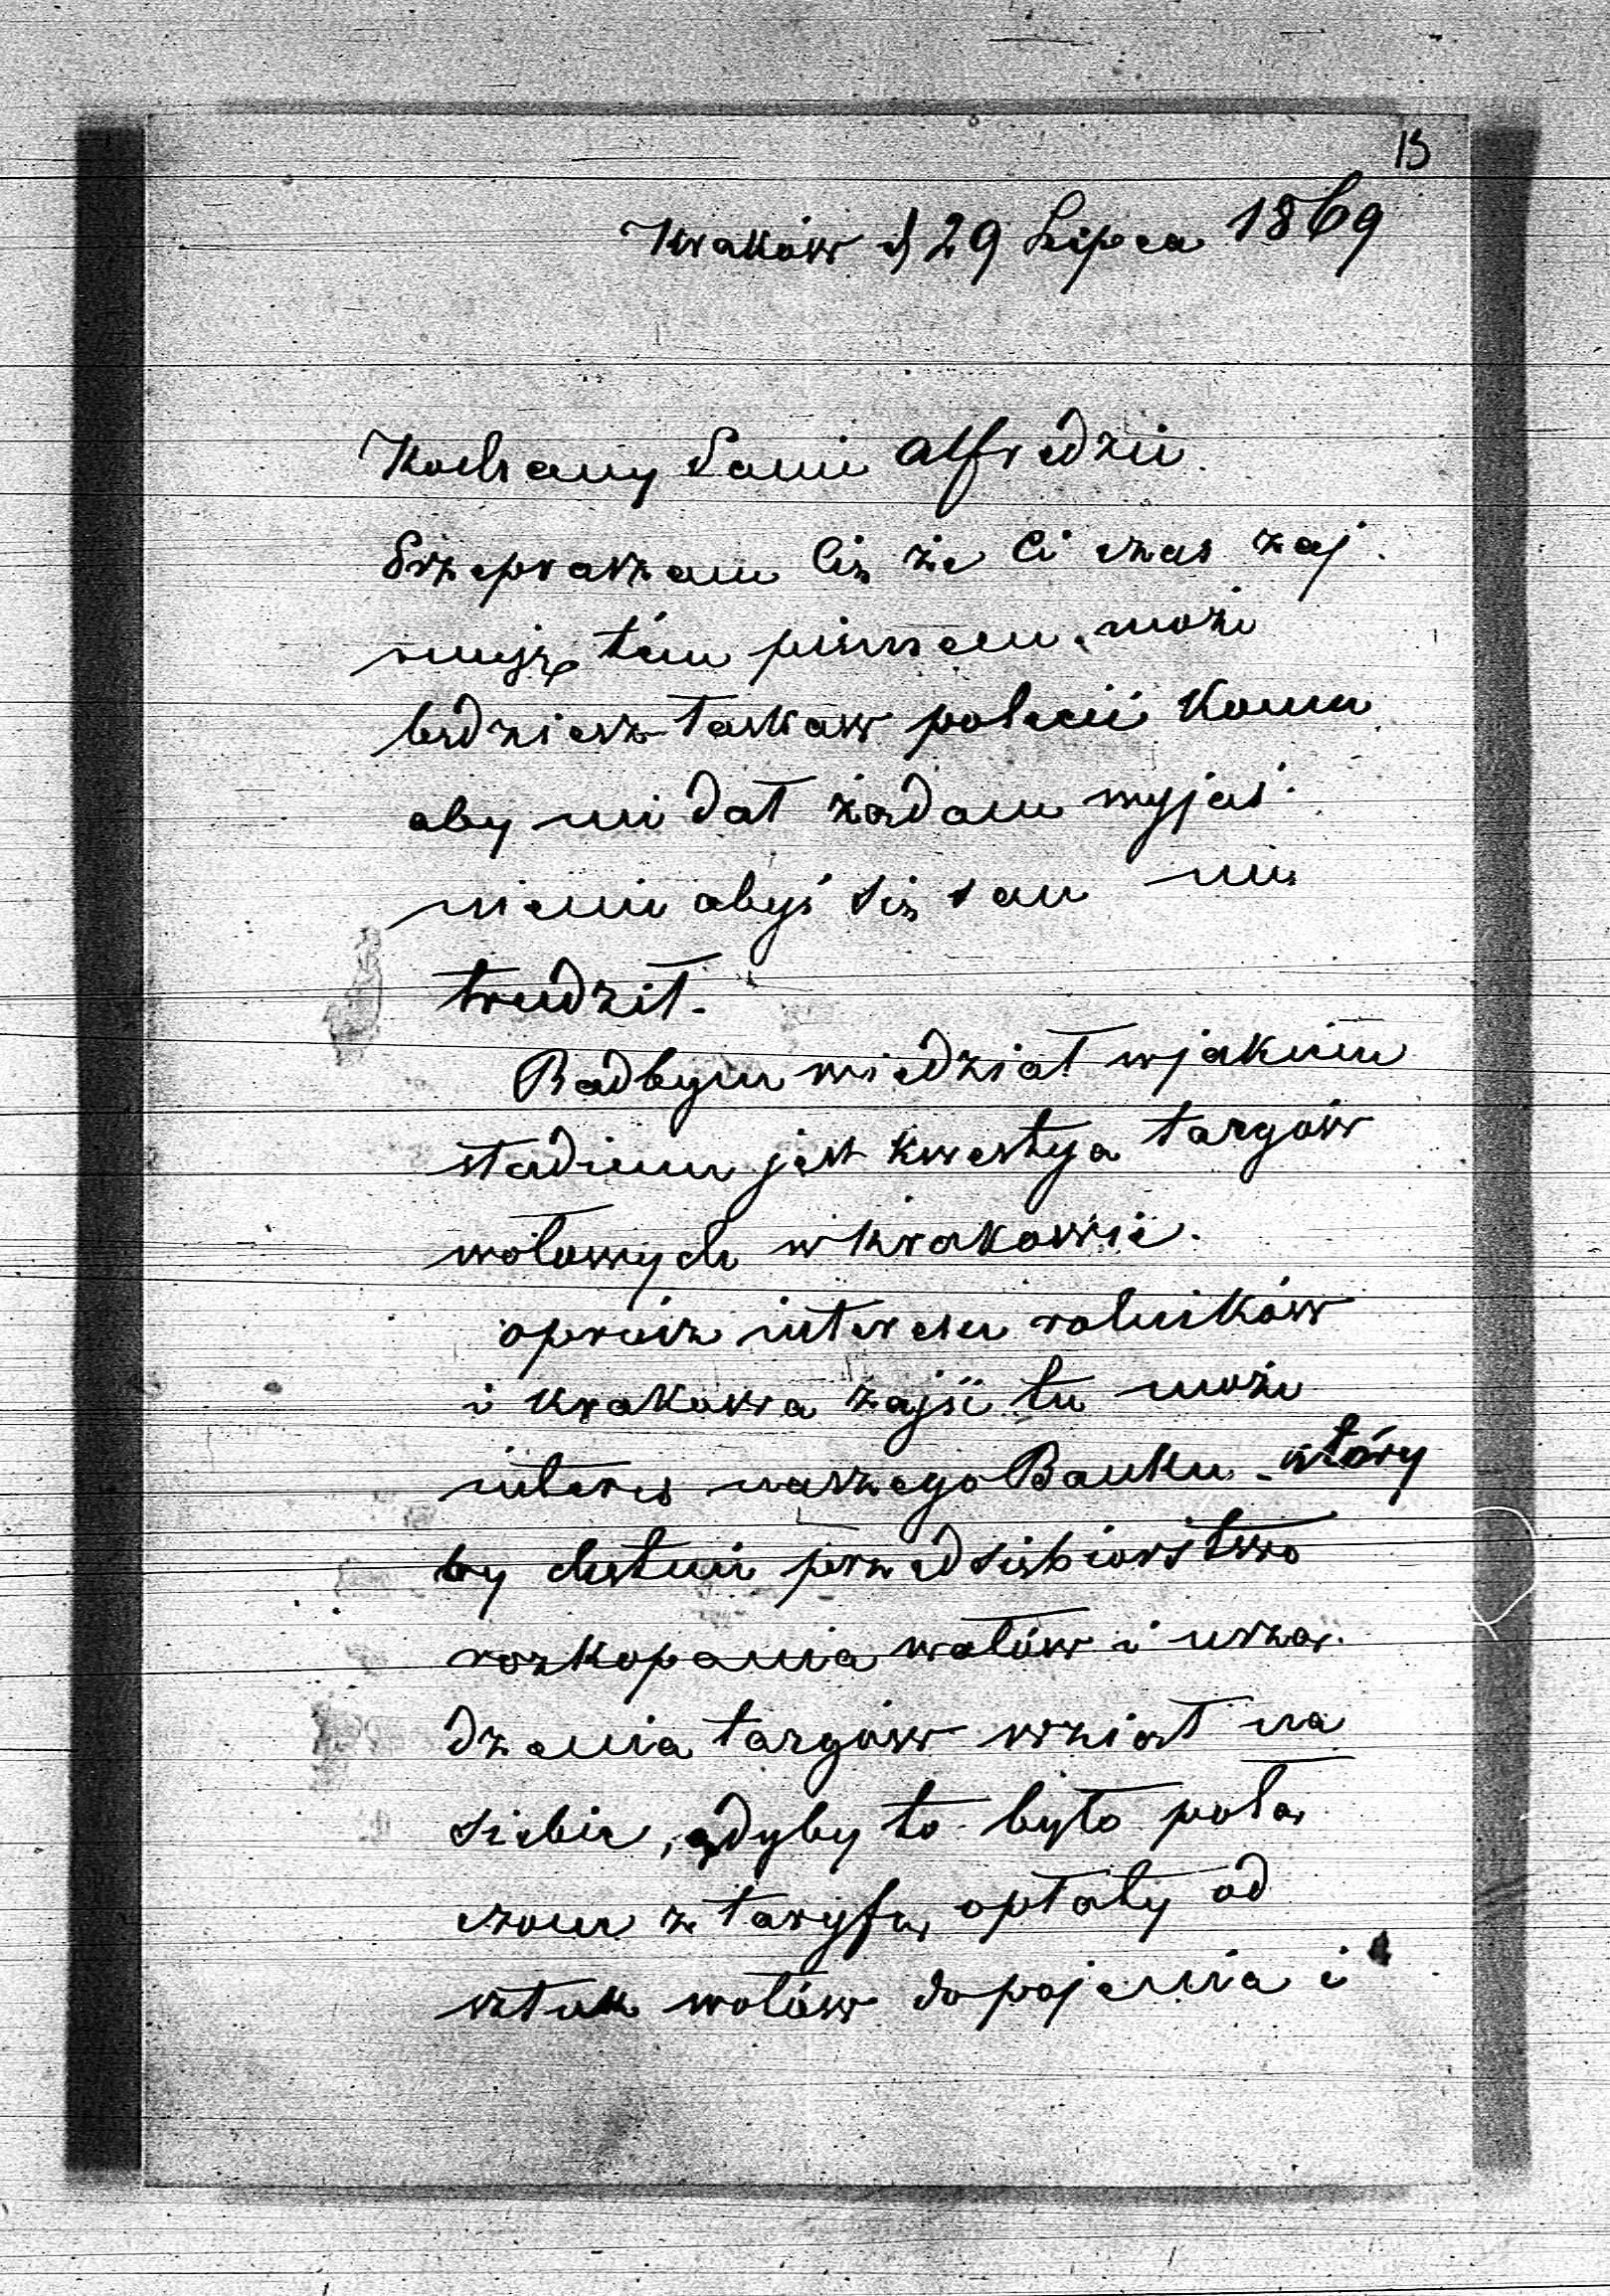 13
Kraków d 29 Lipca 1869
Kochany Panie Alfredzie.
Przepraszam Cię że Ci czas zaj-
muję tém pismem, może
będziesz łaskaw polecić komu
aby mi dał żądane wyjaś-
nienie abyś się sam nie
trudził.
Radbym wiedział w jakiem
stadium jest kwestya targów
wołowych w Krakowie.
oprócz interesu rolników
i Krakowa zajść tu może
interes naszego Banku - który
by chętnie przedsiębiorstwo
rozkopania wałów i urzą-
dzenia targów wziął na
siebie, gdyby to było połą-
czone z taryfą opłaty od
sztuk wołów do pojenia i